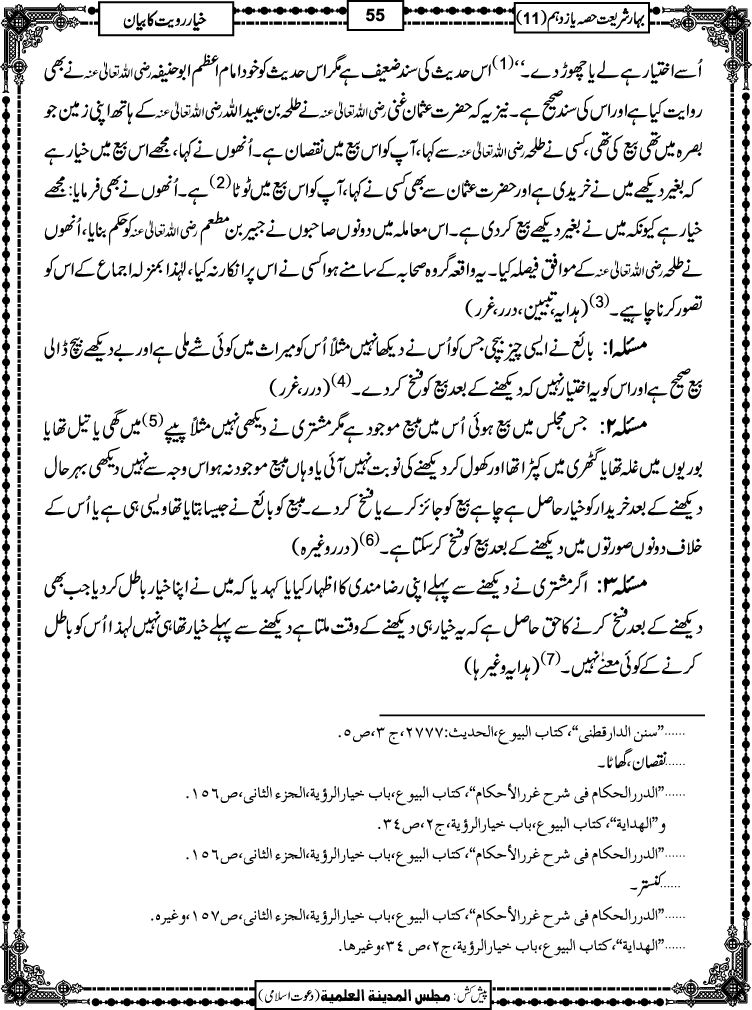 بہارِشریعت حصہ یازدہم (11)
55
خیار رویت کا بیان
اُسے اختیار ہے لے یا چھوڑ دے۔‘‘(1) اس حدیث کی سند ضعیف ہے مگر اس حدیث کو خود امام اعظم ابوحنیفہ رضی اللہ تعالیٰ عنہ نے بھی
روایت کیا ہے اور اس کی سند صحیح ہے۔ نیز یہ کہ حضرت عثمان غنی رضی اللہ تعالیٰ عنہ نے طلحہ بن عبیداللہ رضی اللہ تعالیٰ عنہ کے ہاتھ اپنی زمین جو
بصرہ میں تھی بیع کی تھی، کسی نے طلحہ رضی اللہ تعالیٰ عنہ سے کہا، آپ کو اس بیع میں نقصان ہے۔ اُنھوں نے کہا، مجھے اس بیع میں خیار ہے
کہ بغیر دیکھے میں نے خریدی ہے اور حضرت عثمان سے بھی کسی نے کہا، آپ کو اس بیع میں ٹوٹا(2) ہے۔ اُنھوں نے بھی فرمایا: مجھے
خیار ہے کیونکہ میں نے بغیر دیکھے بیع کردی ہے۔ اس معاملہ میں دونوں صاحبوں نے جبیر بن مطعم رضی اللہ تعالیٰ عنہ کو حکم بنایا، اُنھوں
نے طلحہ رضی اللہ تعالیٰ عنہ کے موافق فیصلہ کیا۔ یہ واقعہ گروہ صحابہ کے سامنے ہوا کسی نے اس پر انکار نہ کیا، لہٰذا بمنزلہ اجماع کے اس کو
تصور کرنا چاہیے۔(3) (ہدایہ، تبیین، درر، غرر)
مسئلہ ۱: بائع نے ایسی چیز بیچی جس کو اُس نے دیکھا نہیں مثلاً اُس کو میراث میں کوئی شے ملی ہے اور بے دیکھے بیچ ڈالی
بیع صحیح ہے اور اس کو یہ اختیار نہیں کہ دیکھنے کے بعد بیع کو فسخ کردے۔(4) (درر، غرر)
مسئلہ ۲: جس مجلس میں بیع ہوئی اُس میں مبیع موجود ہے مگر مشتری نے دیکھی نہیں مثلاً پیپے(5) میں گھی یا تیل تھا یا
بوریوں میں غلہ تھا یا گٹھری میں کپڑا تھا اور کھول کر دیکھنے کی نوبت نہیں آئی یا وہاں مبیع موجود نہ ہو اس وجہ سے نہیں دیکھی بہرحال
دیکھنے کے بعد خریدار کو خیار حاصل ہے چاہے بیع کو جائز کرے یا فسخ کردے۔ مبیع کو بائع نے جیسا بتایا تھا ویسی ہی ہے یا اُس کے
خلاف دونوں صورتوں میں دیکھنے کے بعد بیع کو فسخ کرسکتا ہے۔(6) (درر وغیرہ)
مسئلہ ۳: اگر مشتری نے دیکھنے سے پہلے اپنی رضامندی کا اظہار کیا یا کہدیا کہ میں نے اپنا خیار باطل کردیا جب بھی
دیکھنے کے بعد فسخ کرنے کا حق حاصل ہے کہ یہ خیار ہی دیکھنے کے وقت ملتا ہے دیکھنے سے پہلے خیار تھا ہی نہیں لہٰذا اُس کو باطل
کرنے کے کوئی معنےٰ نہیں۔(7) (ہدایہ وغیرہا)
......”سنن الدارقطنی“، کتاب البیوع، الحدیث: ۲۷۷۷، ج ۳، ص ۵.
......نقصان، گھاٹا۔
......”الدررالحکام فی شرح غررالأحکام“، کتاب البیوع، باب خیارالرؤیة، الجزء الثانی، ص ۱۵۶.
و ”الھدایة“، کتاب البیوع، باب خیارالرؤیة، ج۲، ص ۳٤.
......”الدررالحکام فی شرح غررالأحکام“، کتاب البیوع، باب خیارالرؤیة، الجزء الثانی، ص ۱۵۶.
......کنستر۔
......”الدررالحکام فی شرح غررالأحکام“، کتاب البیوع، باب خیارالرؤیة، الجزء الثانی، ص ۱۵۷، وغیرہ.
......”الھدایة“، کتاب البیوع، باب خیارالرؤیة، ج۲، ص ۳٤، وغیرھا.
پیش کش: مجلس المدینة العلمیة (دعوت اسلامی)